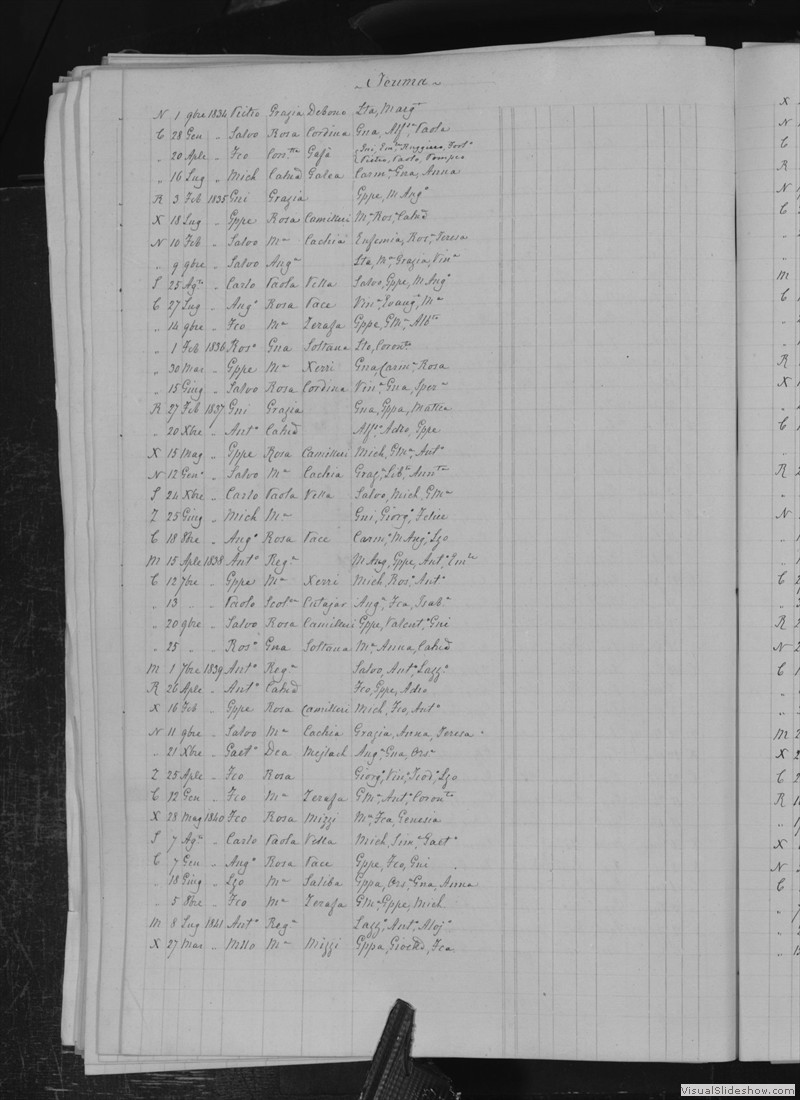 ~ Scuma ~
N 1 9bre 1834 Pietro Grazia Debono Sta, Margta
C 28 Gen " Salvo Rosa Cordina Gna, Alfso, Paola
" 20 Aple " Fco Consta Gafà Gni, Emle, Ruggiero, Fort
Pietro, Paolo, Pompeo
" 16 Lug " Mich Catnd Galea Carma, Gna, Anna
R 3 Feb 1835 Gni Grazia Gppe, M Anga
X 18 Lug " Gppe Rosa Camilleri Ma, Rosa, Catnd
N 10 Feb " Salvo Ma Cachia Eufemia, Rosa, Teresa
" 9 9bre " Salvo Anga Sta, Ma, Grazia, Vina
S 25 Agto " Carlo Paola Vella Salvo, Gppe, M Anga
C 27 Lug " Ango Rosa Pace Vina, Evanga, Ma
" 14 9bre " Fco Ma Zerafa Gppe, GMa, Albto
" 1 Feb 1836 Roso Gna Soltana Sto, Coronta
" 30 Mar " Gppe Ma Xerri Gna, Carma, Rosa
" 15 Giug " Salvo Rosa Cordina Vina, Gna, Spera
R 27 Feb 1837 Gni Grazia Gna, Gppa, Mattea
" 20 Xbre " Anto Catnd Alfso, Adeo, Gppe
X 15 Mag " Gppe Rosa Camilleri Mich, GMa, Anto
N 12 Geno " Salvo Ma Cachia Graza, Liba, Annta
S 24 Xbre " Carlo Paola Vella Salvo, Mich, GMa
Z 25 Giug " Mich Ma Gni, Giorgo, Felice
C 18 8bre " Ango Rosa Pace Carmo, M Ango, Lzo
M 15 Aple 1838 Anto Rega M Ang, Gppe, Anto, Emle
C 12 7bre " Gppe Ma Xerri Mich, Roso, Anto
" 13 " " Paolo Scolca Cutajar Anga, Fca, Isaba
" 20 9bre " Salvo Rosa Camilleri Gppe, Valent, Gni
" 25 " " Roso Gna Soltana Ma, Anna, Catnd
M 1 7bre 1839 Anto Rega Salvo, Anto, Lazzo
R 26 Aple " Anto Catnd Fco, Gppe, Adeo
X 16 Feb " Gppe Rosa Camilleri Mich, Fco, Anto
N 11 9bre " Salvo Ma Cachia Grazia, Anna, Teresa
" 21 Xbre " Gaeto Dea Mejlach Anga, Gna, Orsa
Z 25 Aple " Fco Rosa Giorgo, Vino, Teodo, Lzo
C 12 Gen " Fco Ma Zerafa GMa, Anta, Coronta
X 28 Mag 1840 Fco Rosa Mizzi Ma, Fca, Genesia
S 7 Agto " Carlo Paola Vella Mich, Sima, Gaeto
C 7 Gen " Ango Rosa Pace Gppe, Fco, Gni
" 18 Giug " Lzo Ma Saliba Gppa, Orsa, Gna, Anna
" 5 8bre " Fco Ma Zerafa GMa, Gppe, Mich
M 8 Lug 1841 Anto Rega Lazzo, Anto, Alojo
X 27 Mar " Mllo Ma Mizzi Gppa, Fca
VisualSlideshow.com